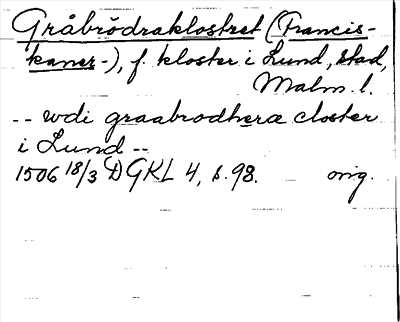 Gråbrödraklostret (Francis-
kaner-), f. kloster i Lund, stad,
Malm. l.
-- wdi graabrodhera closter
i Lund --
1506 18/3 DGKL 4, s. 98. orig.